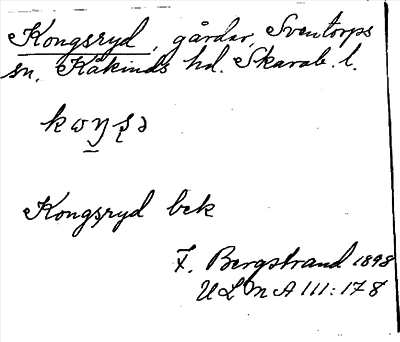 Kongsryd, gårdar, Sventorps
sn, Kåkinds hd. Skarab. l.
kωŋʂə
Kongsryd bek
F. Bergstrand 1898
ULMA 111:178